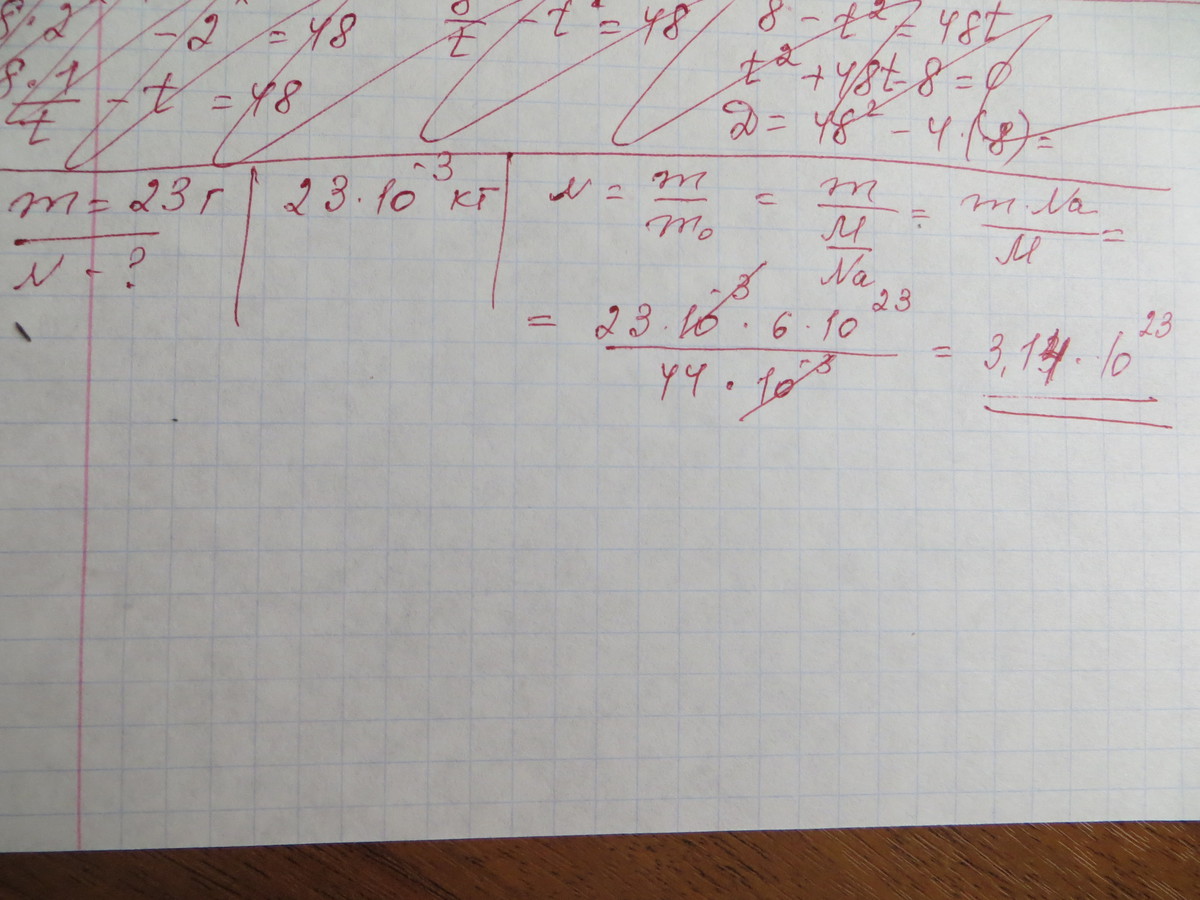 8·2 - 2 = 48 8/t - t² = 48 8 - t² = 48t
8·1/t - t = 48 t² + 48t - 8 = 0
D = 48² - 4·(-8) =
m = 23 г | 23·10⁻³ кг | N = m/m₀ = m/(M/Na) = m·Na/M =
N - ?
= 23·10⁻³·6·10²³/44·10⁻³ = 3,14·10²³